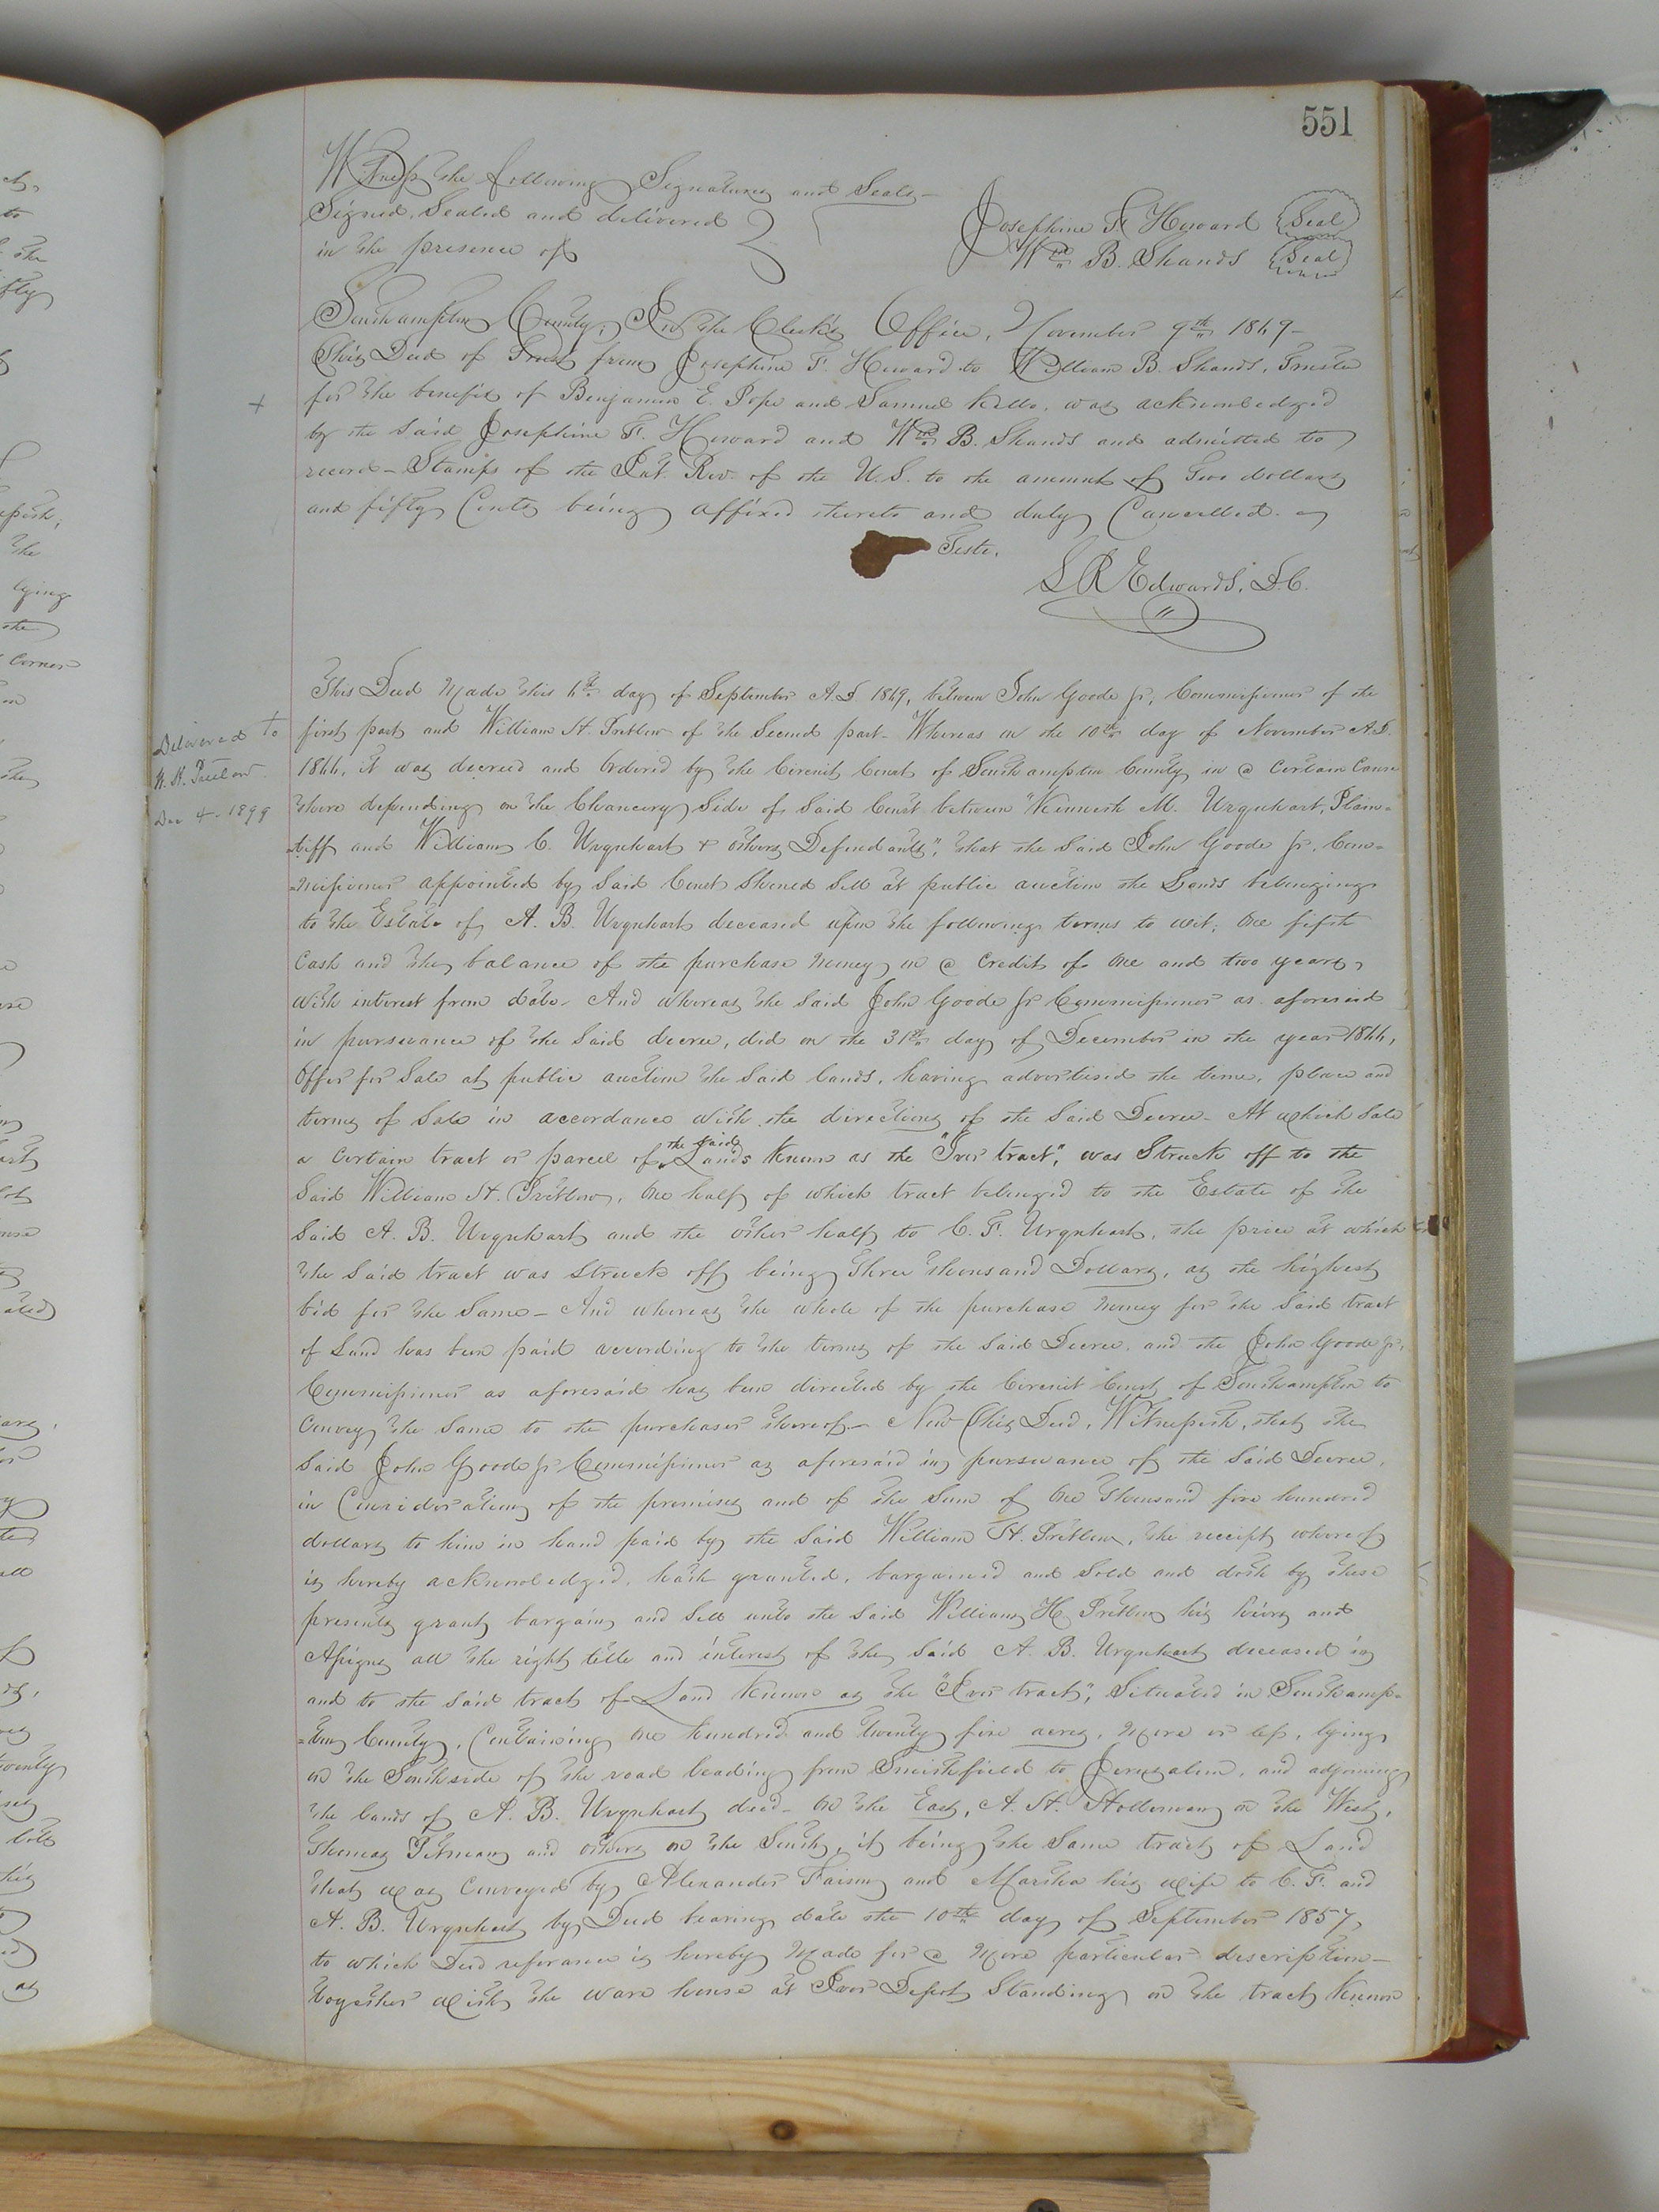 551
Witness the following Signatures and Seals—
Signed, Sealed and delivered
in the presence of
Josephine F. Howard Seal
Wm B. Shands Seal
Southampton County, In the Clerk's Office, November 9th 1869—
This Deed of Trust from Josephine F. Howard to William B. Shands, Trustee
for the benefit of Benjamin E. Pope and Samuel Kello, was acknowledged
+
by the said Josephine F. Howard and Wm B. Shands and admitted to
record— Stamps of the Int. Rev. of the U.S. to the amount of Two dollars
and fifty Cents being affixed thereto and duly Cancelled.
Teste,
L R Edwards, D.C.
This Deed Made this 6th day of September A.D. 1869, between John Goode Jr, Commissioner of the
first part and William H. Pretlow of the Second part— Whereas on the 10th day of November A.D.
Delivered to
W. H. Pretlow
Dec 4- 1899
1866, it was decreed and Ordered by the Circuit Court of Southampton County in a Certain Cause
there depending on the Chancery Side of Said Court between "Kenneth M. Urquhart, Plain=
=tiff and William C. Urquhart & others Defendants", that the Said John Goode Jr. Com=
=missioner appointed by Said Court Should Sell at public auction the Lands belonging
to the Estate of A. B. Urquhart deceased upon the following terms to wit; One fifth
Cash and the balance of the purchase Money on a Credit of One and two years,
with interest from date. And whereas the Said John Goode Jr Commissioner as aforesaid
in pursuance of the Said decree, did on the 31st day of December in the year 1866,
Offer for Sale at public auction the Said lands, having advertised the time, place and
terms of Sale in accordance with the directions of the Said Decree— At which Sale
a Certain tract or parcel of the said Lands Known as the "Ivor tract", was Struck off to the
Said William H. Pretlow, One half of which tract belonged to the Estate of the
Said A. B. Urquhart and the other half to C. F. Urquhart, the price at which
the Said tract was Struck off being Three thousand Dollars, as the highest
bid for the Same— And whereas the whole of the purchase Money for the Said tract
of Land has been paid according to the terms of the Said Decree, and the John Goode Jr,
Commissioner as aforesaid has been directed by the Circuit Court of Southampton to
Convey the Same to the purchaser thereof— Now This Deed, Witnesseth, that the
Said John Goode Jr Commissioner as aforesaid in pursuance of the Said Decree,
in Consideration of the premises and of the Sum of One Thousand five hundred
dollars to him in hand paid by the Said William H. Pretlow, the receipt whereof
is hereby acknowledged, hath granted, bargained and Sold and doth by these
presents grant, bargain, and Sell unto the Said William H Pretlow his heirs and
Assigns all the right title and interest of the Said A. B. Urquhart deceased in
and to the Said tract of Land Known as the "Ivor tract", Situated in Southamp=
=ton County, Containing One hundred and twenty five acres, More or less, lying
on the South side of the road leading from Smithfield to Jerusalem, and adjoining
the lands of A. B. Urquhart decd— On the East, A. H. Holleman on the West,
Thomas Pitman and others on the South, it being the Same tract of Land
that was Conveyed by Alexander Faison and Martha his wife to C. F. and
A. B. Urquhart by Deed bearing date the 10th day of September 1857,
to which Deed reference is hereby Made for a More particular description—
together with the ware house at Ivor Depot Standing on the tract Known